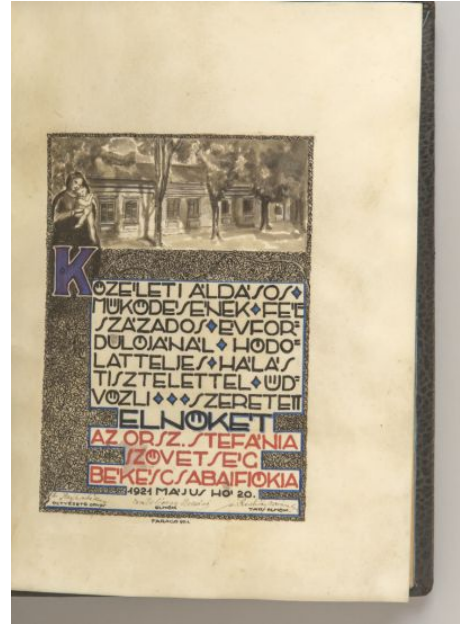 KÖZÉLETI ÁLDÁSOS
MŰKÖDÉSÉNEK FÉL
SZÁZADOS ÉVFOR
DULÓJÁNÁL HÓDO=
LATTELJES HÁLÁS
TISZTELETTEL ÜD=
VÖZLI SZERETETT
ELNÖKÉT
AZ ORSZ. STEFÁNIA
SZÖVETSÉG
BÉKÉSCSABAIFIÓKJA
1921 MÁJUS HÓ 20.
ELNÖK
TÁRS ELNÖK